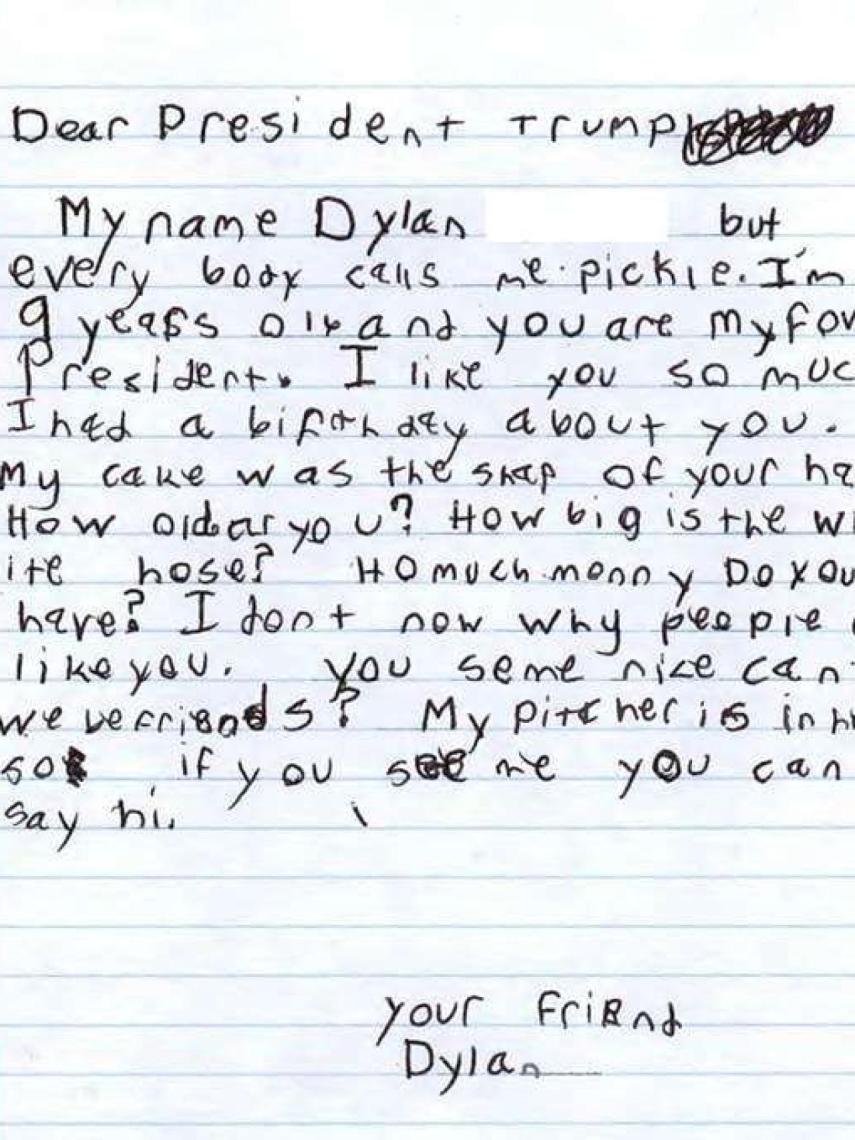 Dear President Trump
My name Dylan but
every body calls me pickle. I'm
9 years old and you are my fav
President. I like you so muc
I had a birthday about you.
My cake was the shap of your ha
How old ar you? How big is the w
ite hose? Ho much monny Do you
have? I dont now why peeple
like you. you seme nice can
we be friends? My pitcher is in h
so if you see me you can
say hi.
your friend
Dylan